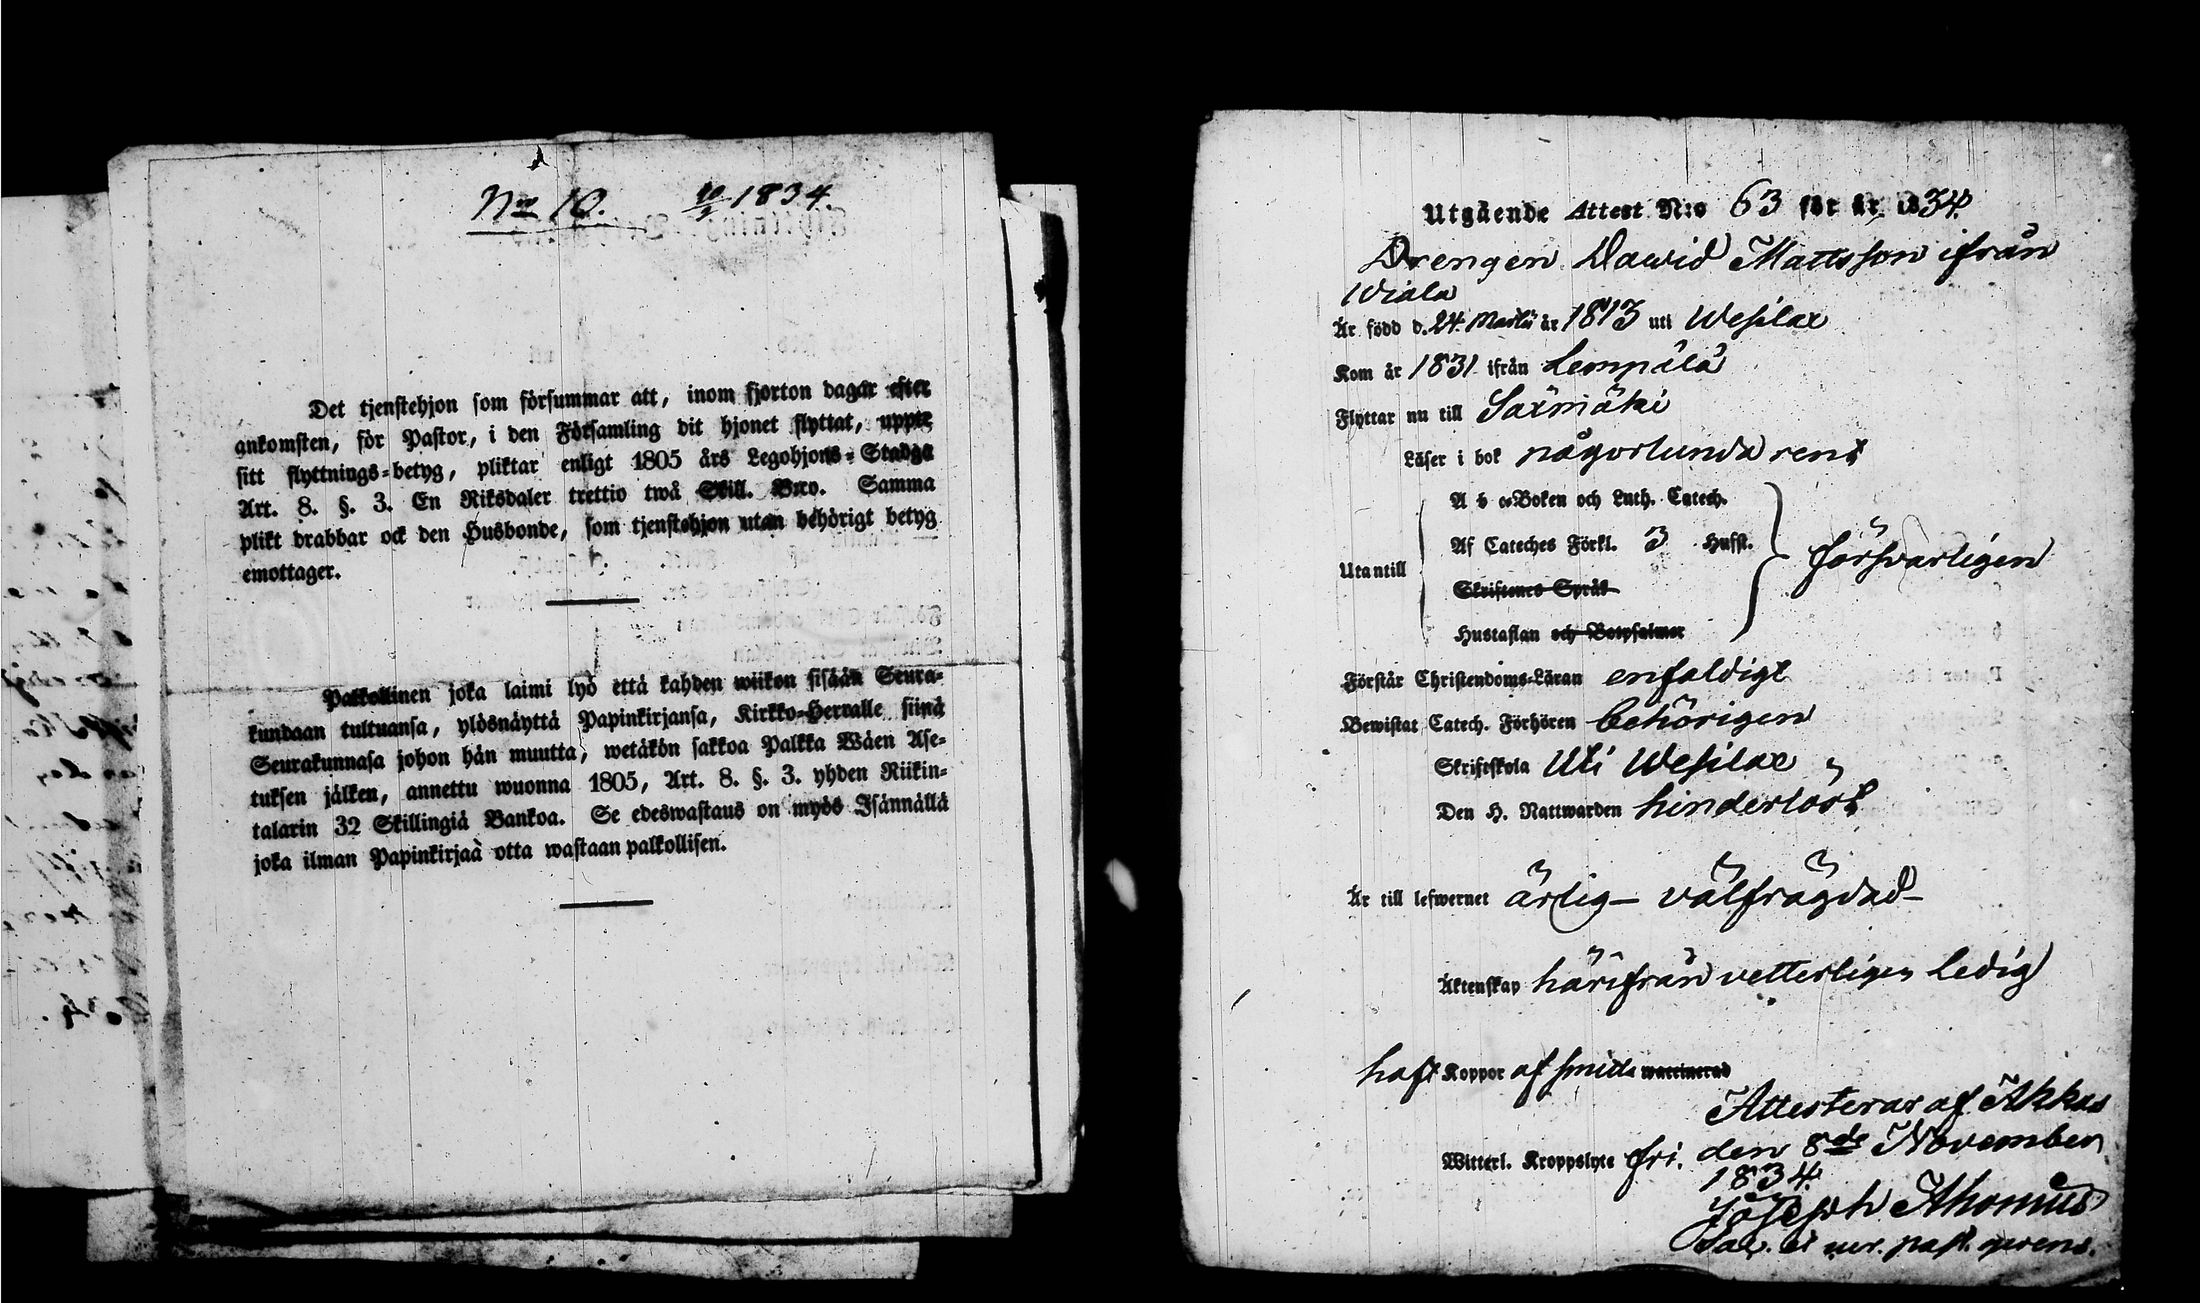 No 10. 10/11 1834.
Det tjenstehjon som försummar att, inom fjorton dagar efter
ankomsten, för Pastor, i den Församling dit hjonet flyttat, uppte
sitt flyttnings-betyg, pliktar enligt 1805 års Legohjons-Stadga
Art. 8. §. 3. En Riksdaler trettio twå Skill. Bco. Samma
plikt drabbar ock den Husbonde, som tjenstehjon utan behörigt betyg
emottager.
Palkollinen joka laimi lyö että kahden wiikon sisään Seura-
kundaan tultuansa, ylösnäyttä Papinkirjansa, Kirkko-Herralle siinä
Seurakunnasa johon hän muutta, wetäkön sakkoa Palkka Wäen Ase-
tuksen jälken, annettu wuonna 1805, Art. 8. §. 3. yhden Riikin-
talarin 32 Skillingiä Bankoa. Se edeswastaus on myös Isännällä
joka ilman Papinkirjaà otta wastaan palkollisen.
Utgående Attest N:o 63 för år 1834.
Drengen Dawid Mattsson ifrån
Wiala
Är född d. 24 Martii år 1813 uti Wesilax
Kom år 1831 ifrån Lempälä
Flyttar nu till Saxmäki
Läser i bok någorlunda rent
A b c-Boken och Luth. Catech.
Af Cateches Förkl. 3 Hufst.
Utantill försvarligen
Skriftenes Språk
Hustaflan och Botpsalmer
Förstår Christendoms-Läran enfaldigt
Bewistat Catech. Förhören behörigen
Skriftskola Uti Wesilax
Den H. Nattwarden hinderlöst
Är till lefwernet ärlig - välfrägdad -
Äktenskap härifrån vetterligen ledig
haft Koppor af smitta waccinerad
Attesteras af Akkas
den 8de November
Witterl. Kroppslyte fri.
1834.
Joseph
Sac. et past.